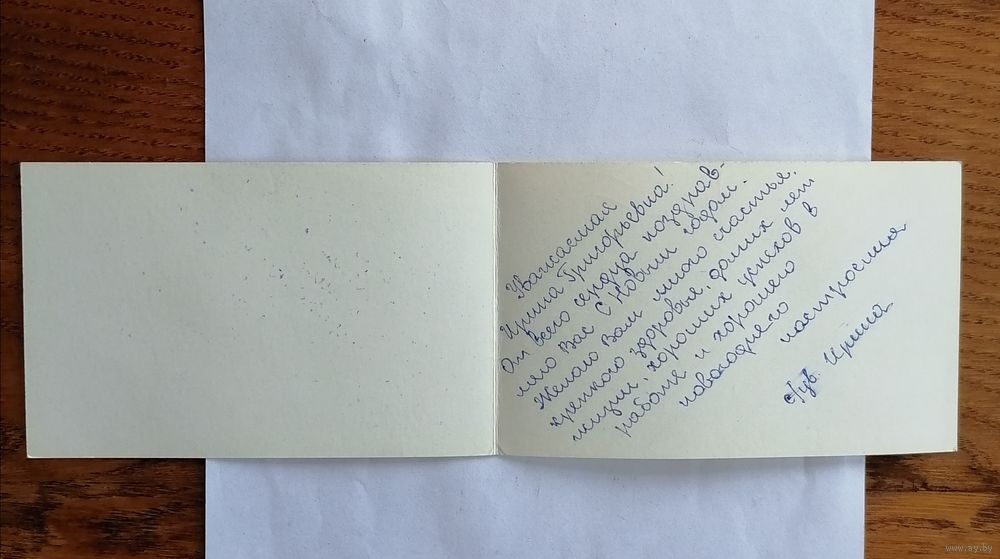 Уважаемая
Ирина Григорьевна!
От всего сердца поздрав-
ляю Вас с Новым годом.
Желаю Вам много счастья,
крепкого здоровья, долгих лет
жизни, хороших успехов в
работе и хорошего
новогоднего настроения
с/ув. Ирина
www.ay.by